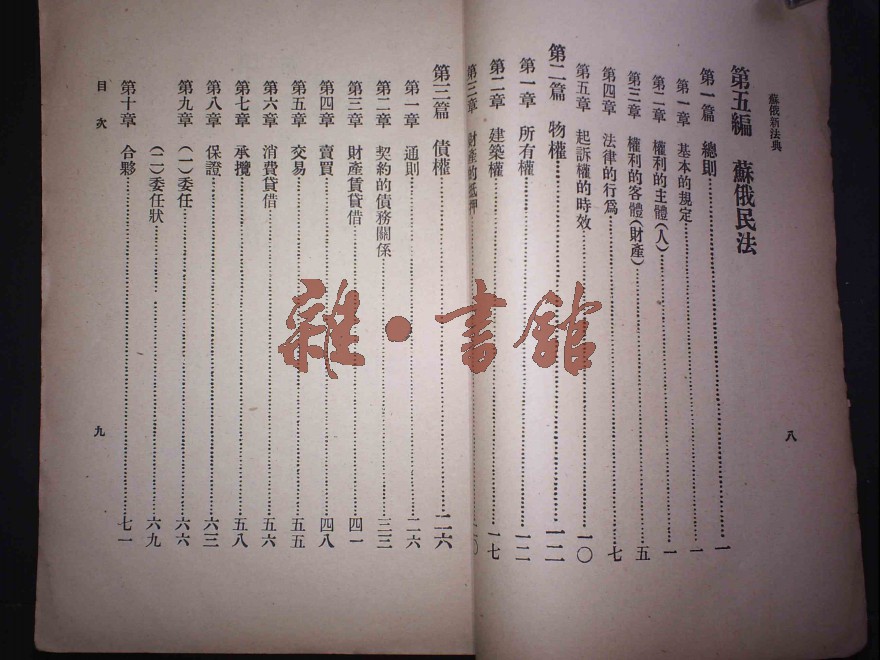 蘇俄新法典
八
第五編 蘇俄民法
第一篇 總則 一
第一章 基本的規定 一
第二章 權利的主體（人） 一
第三章 權利的客體（財產） 五
第四章 法律的行爲 七
第五章 起訴權的時效 一〇
第二篇 物權 一二
第一章 所有權 一二
第二章 建築權 一七
第三章 財產的抵押
第三篇 債權 二六
第一章 通則 二六
第二章 契約的債務關係 三三
第三章 財產賃貸借 四一
第四章 賣買 四八
第五章 交易 五五
第六章 消費貸借 五六
第七章 承攬 五八
第八章 保證 六三
第九章 （一）委任 六六
（二）委任狀 六九
第十章 合夥 七一
目次
九
雜·書館